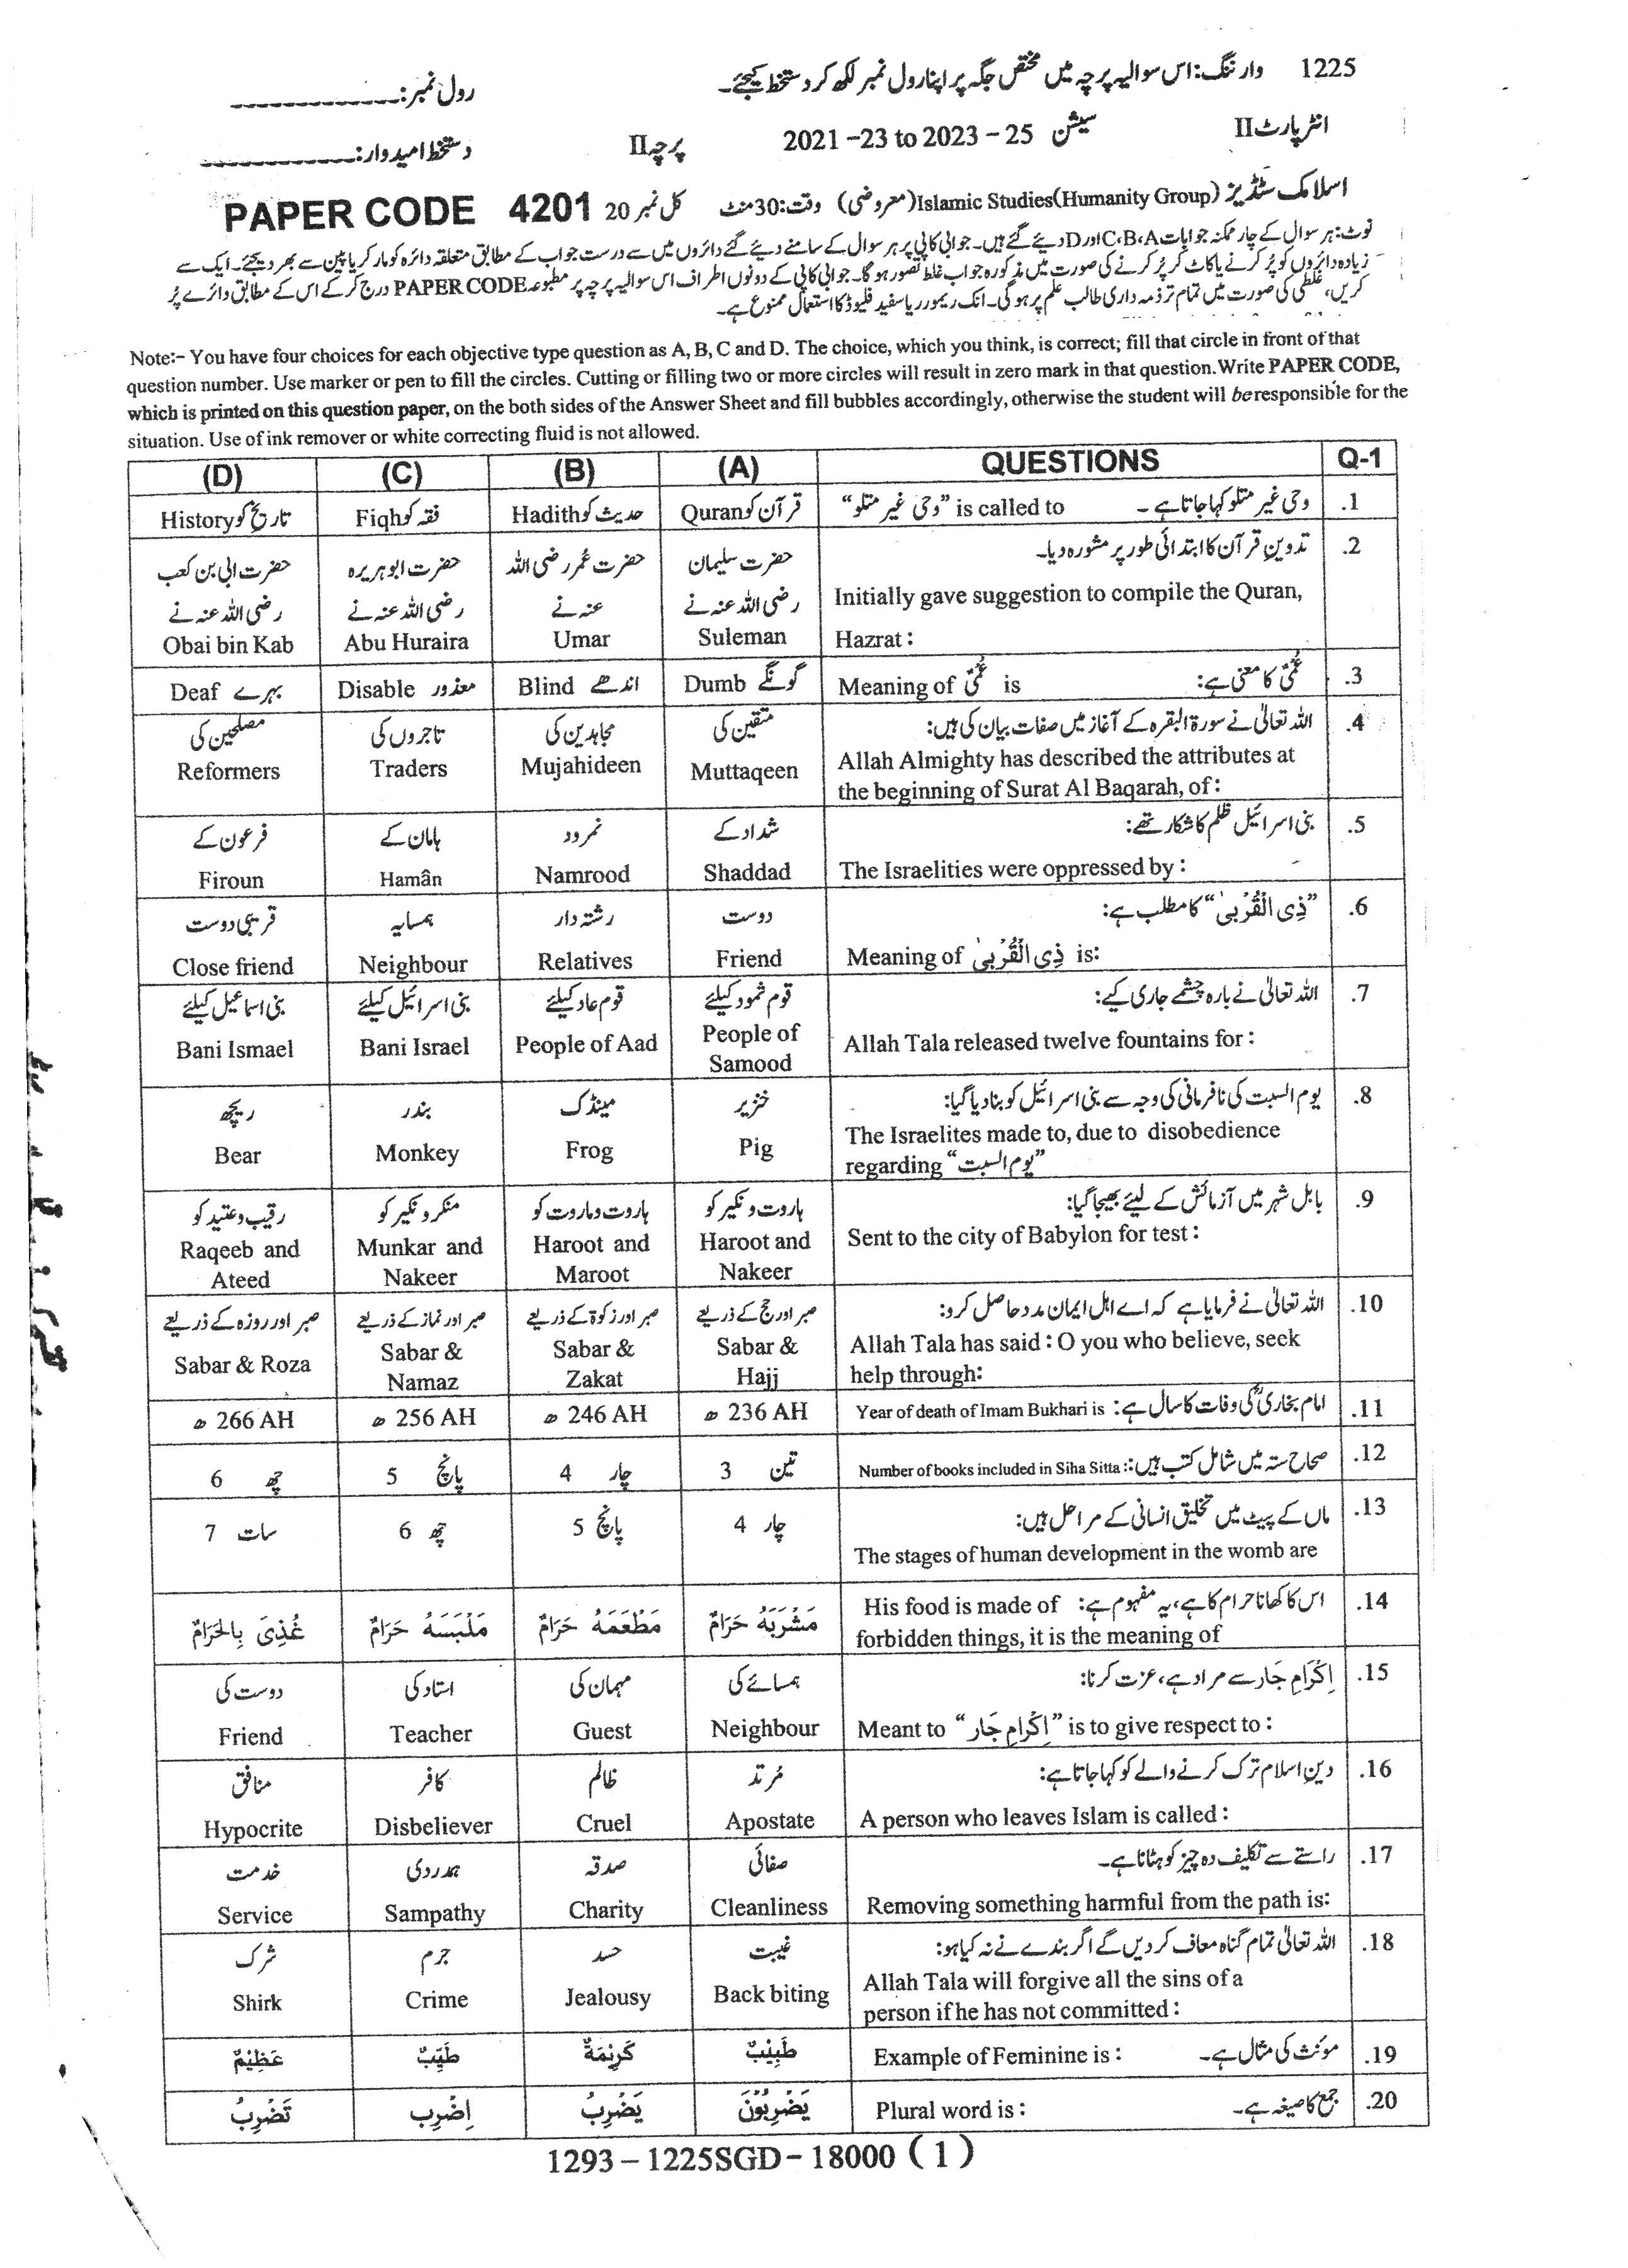 1225 وارننگ: اس سوالیہ پرچہ میں مختص جگہ پر اپنا رول نمبر لکھ کر دستخط کیجئے۔ رول نمبر: -------------
انٹر پارٹ II سیشن 2021 –23 to 2023 – 25 پرچہ II دستخط امیدوار: -------------
اسلامک سٹڈیز Islamic Studies(Humanity Group) (معروضی) وقت: 30 منٹ کل نمبر 20 PAPER CODE 4201
نوٹ: ہر سوال کے چار ممکنہ جوابات C، B، A اور D دیئے گئے ہیں۔ جوابی کاپی پر ہر سوال کے سامنے دیئے گئے دائروں میں سے درست جواب کے مطابق متعلقہ دائرہ کو مارکر یا پین سے بھر دیجئے۔ ایک سے
زیادہ دائروں کو پُر کرنے یا کاٹ کر پُر کرنے کی صورت میں مذکورہ جواب غلط تصور ہوگا۔ جوابی کاپی کے دونوں اطراف اس سوالیہ پرچہ پر مطبوعہ PAPER CODE درج کر کے اس کے مطابق دائرے پُر
کریں، غلطی کی صورت میں تمام تر ذمہ داری طالب علم پر ہوگی۔ انک ریمور ریا سفید فلیوڈ کا استعمال ممنوع ہے۔
Note:- You have four choices for each objective type question as A, B, C and D. The choice, which you think, is correct; fill that circle in front of that
question number. Use marker or pen to fill the circles. Cutting or filling two or more circles will result in zero mark in that question. Write PAPER CODE,
which is printed on this question paper, on the both sides of the Answer Sheet and fill bubbles accordingly, otherwise the student will be responsible for the
situation. Use of ink remover or white correcting fluid is not allowed.
(D) (C) (B) (A) QUESTIONS Q-1
.1 وحی غیر متلو کہا جاتا ہے۔ "وحی غیر متلو" is called to
قرآن کو Quran
حدیث کو Hadith
فقہ کو Fiqh
تاریخ کو History
.2 تدوین قرآن کا ابتدائی طور پر مشورہ دیا۔
Initially gave suggestion to compile the Quran,
Hazrat :
حضرت سلیمان
رضی اللہ عنہ نے
Suleman
حضرت عمر رضی اللہ
عنہ نے
Umar
حضرت ابو ہریرہ
رضی اللہ عنہ نے
Abu Huraira
حضرت ابی بن کعب
رضی اللہ عنہ نے
Obai bin Kab
.3 عُمْیٌ کا معنی ہے: Meaning of عُمْیٌ is
گونگے Dumb
اندھے Blind
معذور Disable
بہرے Deaf
.4 اللہ تعالیٰ نے سورۃ البقرہ کے آغاز میں صفات بیان کی ہیں:
Allah Almighty has described the attributes at
the beginning of Surat Al Baqarah, of :
متقین کی
Muttaqeen
مجاہدین کی
Mujahideen
تاجروں کی
Traders
مصلحین کی
Reformers
.5 بنی اسرائیل ظلم کا شکار تھے:
The Israelities were oppressed by :
شداد کے
Shaddad
نمرود
Namrood
ہامان کے
Hamân
فرعون کے
Firoun
.6 "ذِی الْقُرْبیٰ" کا مطلب ہے:
Meaning of ذِی الْقُرْبیٰ is:
دوست
Friend
رشتہ دار
Relatives
ہمسایہ
Neighbour
قریبی دوست
Close friend
.7 اللہ تعالیٰ نے بارہ چشمے جاری کیے:
Allah Tala released twelve fountains for :
قوم ثمود کیلئے
People of
Samood
قوم عاد کیلئے
People of Aad
بنی اسرائیل کیلئے
Bani Israel
بنی اسماعیل کیلئے
Bani Ismael
.8 یوم السبت کی نافرمانی کی وجہ سے بنی اسرائیل کو بنا دیا گیا:
The Israelites made to, due to disobedience
regarding "یوم السبت"
خنزیر
Pig
مینڈک
Frog
بندر
Monkey
ریچھ
Bear
.9 بابل شہر میں آزمائش کے لیئے بھیجا گیا:
Sent to the city of Babylon for test :
ہاروت و نکیر کو
Haroot and
Nakeer
ہاروت و ماروت کو
Haroot and
Maroot
منکر و نکیر کو
Munkar and
Nakeer
رقیب و عتید کو
Raqeeb and
Ateed
.10 اللہ تعالیٰ نے فرمایا ہے کہ اے اہل ایمان مدد حاصل کرو:
Allah Tala has said : O you who believe, seek
help through:
صبر اور حج کے ذریعے
Sabar &
Hajj
صبر اور زکوٰۃ کے ذریعے
Sabar &
Zakat
صبر اور نماز کے ذریعے
Sabar &
Namaz
صبر اور روزہ کے ذریعے
Sabar & Roza
.11 امام بخاریؒ کی وفات کا سال ہے: Year of death of Imam Bukhari is :
236 AH ھ
246 AH ھ
256 AH ھ
266 AH ھ
.12 صحاح ستہ میں شامل کتب ہیں: Number of books included in Siha Sitta :
تین 3
چار 4
پانچ 5
چھ 6
.13 ماں کے پیٹ میں تخلیق انسانی کے مراحل ہیں:
The stages of human development in the womb are
چار 4
پانچ 5
چھ 6
سات 7
.14 اس کا کھانا حرام کا ہے، یہ مفہوم ہے: His food is made of
forbidden things, it is the meaning of
مَشْرَبَهُ حَرَامٌ
مَطْعَمَهُ حَرَامٌ
مَلْبَسَهُ حَرَامٌ
غُذِیَ بِالحَرَامٌ
.15 اِکْرَامِ جَار سے مراد ہے، عزت کرنا:
Meant to "اِکْرَامِ جَار" is to give respect to :
ہمسائے کی
Neighbour
مہمان کی
Guest
استاد کی
Teacher
دوست کی
Friend
.16 دین اسلام ترک کرنے والے کو کہا جاتا ہے:
A person who leaves Islam is called :
مُرتد
Apostate
ظالم
Cruel
کافر
Disbeliever
منافق
Hypocrite
.17 راستے سے تکلیف دہ چیز کو ہٹانا ہے۔
Removing something harmful from the path is:
صفائی
Cleanliness
صدقہ
Charity
ہمدردی
Sampathy
خدمت
Service
.18 اللہ تعالیٰ تمام گناہ معاف کر دیں گے اگر بندے نے نہ کیا ہو:
Allah Tala will forgive all the sins of a
person if he has not committed :
غیبت
Back biting
حسد
Jealousy
جرم
Crime
شرک
Shirk
.19 مؤنث کی مثال ہے۔ Example of Feminine is :
طَبِیْبٌ
کَرِیْمَةٌ
طَیِّبٌ
عَظِیْمٌ
.20 جمع کا صیغہ ہے۔ Plural word is :
یَضْرِبُوْنَ
یَضْرِبُ
اِضْرِب
تَضْرِبُ
1293 – 1225SGD – 18000 ( 1 )